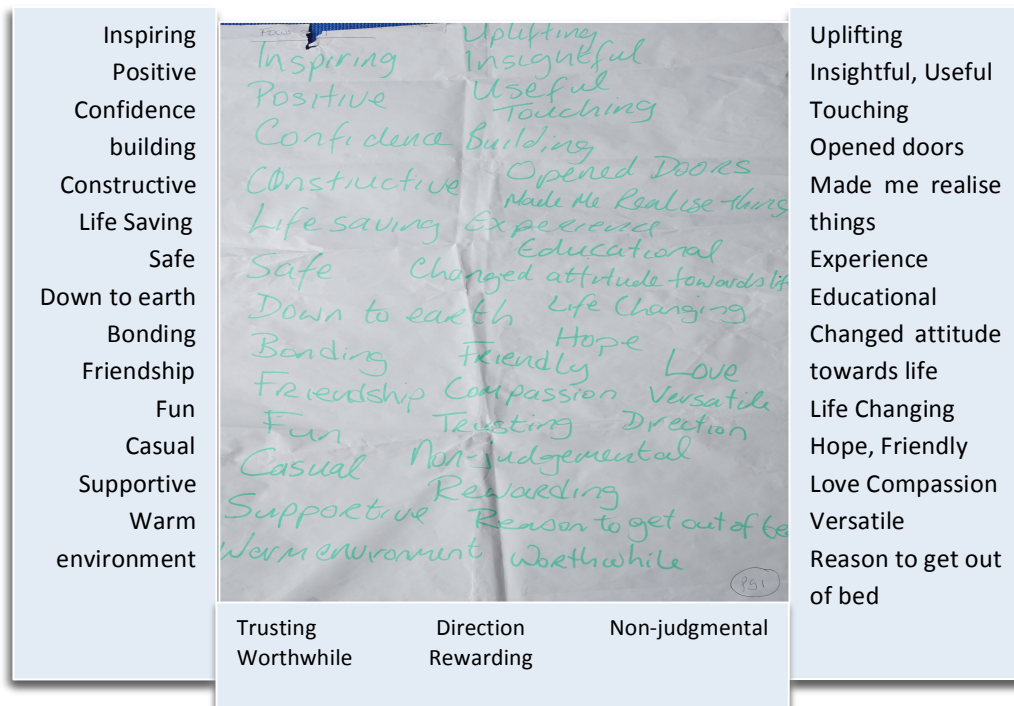 Inspiring
Positive
Confidence
building
Constructive
Life Saving
Safe
Down to earth
Bonding
Friendship
Fun
Casual
Supportive
Warm
environment
Uplifting
Inspiring Insightful
Positive Useful
Touching
Confidence Building
Constructive Opened Doors
Made Me Realise things
Life saving Experience
Educational
Safe Changed attitude towards lif
Down to earth Life Changing
Hope
Bonding Friendly Love
Friendship Compassion Versatile
Fun Trusting Direction
Casual Non-judgemental
Rewarding
Supportive Reason to get out of be
Warm environment Worthwhile
Uplifting
Insightful, Useful
Touching
Opened doors
Made me realise
things
Experience
Educational
Changed attitude
towards life
Life Changing
Hope, Friendly
Love Compassion
Versatile
Reason to get out
of bed
Trusting Direction Non-judgmental
Worthwhile Rewarding